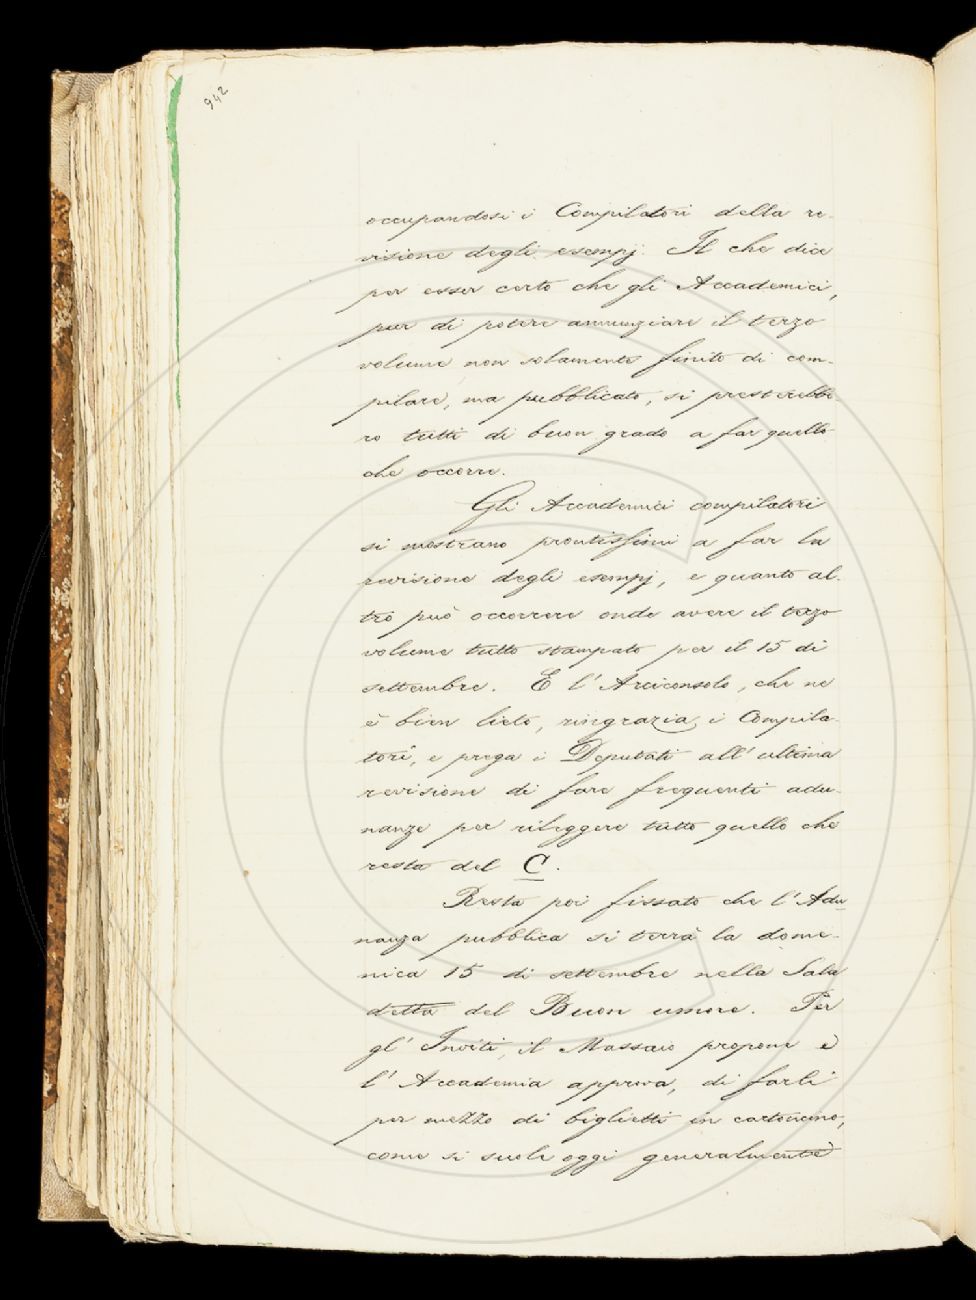 942
occupandosi i Compilatori della re-
visione degli esempj. Il che dice
per esser certo che gli Accademici,
pur di potere annunziare il terzo
volume non solamente finito di com-
pilare, ma pubblicato, si presterebbe
ro tutti di buon grado a far quello
che occorre.
Gli Accademici compilatori
si mostrano prontissimi a far la
revisione degli esempj, e quanto al-
tro può occorrere onde avere il terzo
volume tutto stampato per il 15 di
settembre. E l'Arciconsolo, che ne
è bien lieto, ringrazia i Compila-
tori, e prega i Deputati all'ultima
revisione di fare frequenti adu-
nanze per rileggere tutto quello che
resta del C.
Resta poi fissato che l'Adu-
nanza pubblica si terrà la dome-
nica 15 di settembre nella Sala
detta del Buon umore. Per
gl'Inviti, il Massaio propone è
l'Accademia approva, di farli
per mezzo di biglietti in cartoncino,
come si suole oggi generalmente